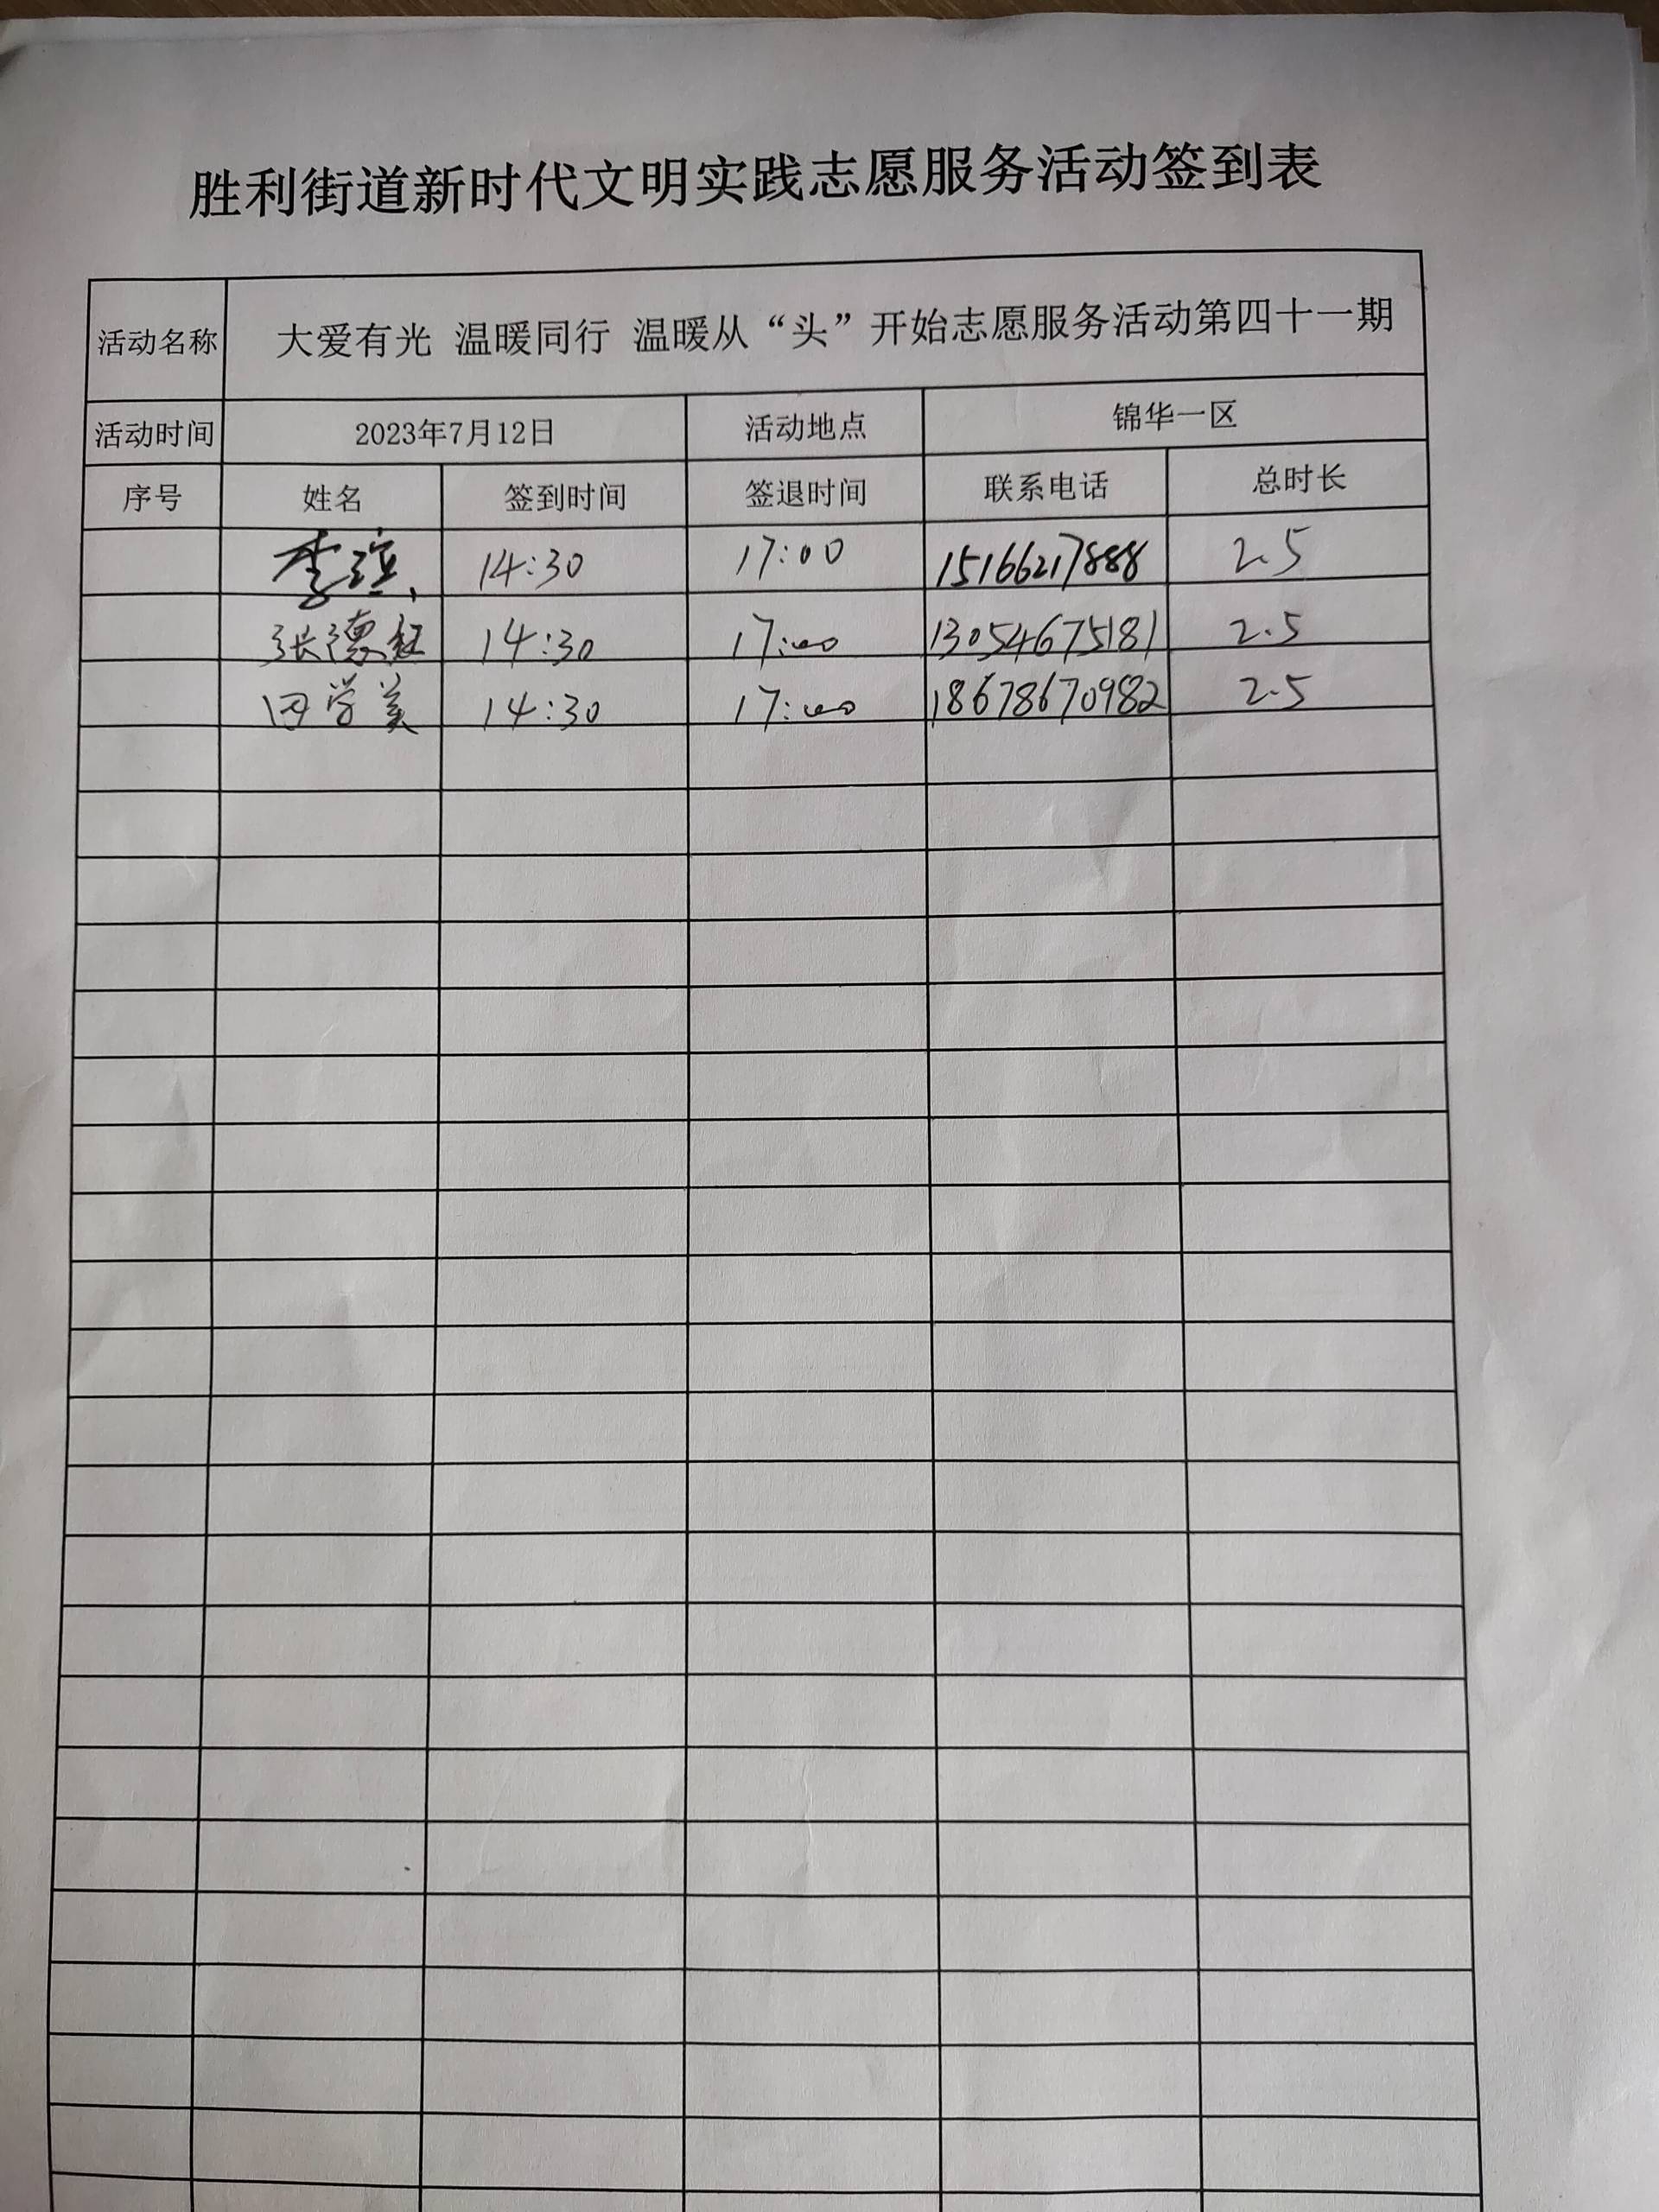 胜利街道新时代文明实践志愿服务活动签到表
活动名称 大爱有光 温暖同行 温暖从“头”开始志愿服务活动第四十一期
活动时间 2023年7月12日 活动地点 锦华一区
序号 姓名 签到时间 签退时间 联系电话 总时长
李 14:30 17:00 15166217888 2.5
张德 14:30 17:00 13054675181 2.5
田学美 14:30 17:00 18678670982 2.5